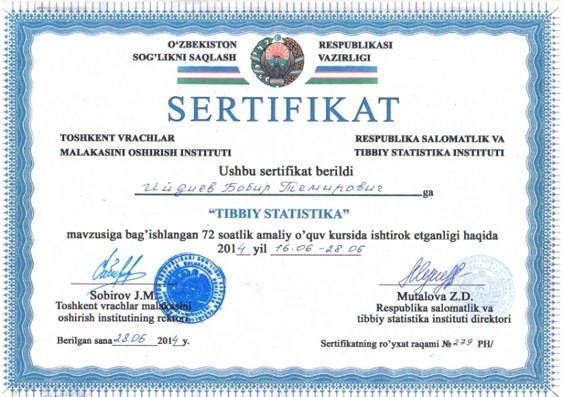 O‘ZBEKISTON RESPUBLIKASI
SOG‘LIKNI SAQLASH VAZIRLIGI
SERTIFIKAT
TOSHKENT VRACHLAR
MALAKASINI OSHIRISH INSTITUTI
RESPUBLIKA SALOMATLIK VA
TIBBIY STATISTIKA INSTITUTI
Ushbu sertifikat berildi
Бобир Темирович ga
“TIBBIY STATISTIKA”
mavzusiga bag’ishlangan 72 soatlik amaliy o’quv kursida ishtirok etganligi haqida
2014 yil 16.06 -28.06
Sobirov J.M.
Toshkent vrachlar malakasini
oshirish institutining rektori
Mutalova Z.D.
Respublika salomatlik va
tibbiy statistika instituti direktori
Berilgan sana 28.06 2014 y.
Sertifikatning ro’yxat raqami № 279 PH/